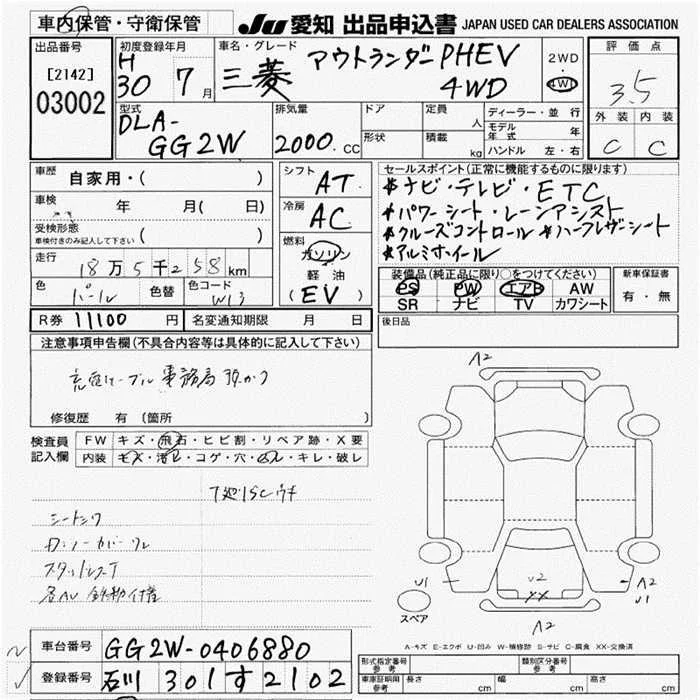 車内保管・守衛保管
JU 愛知 出品申込書 JAPAN USED CAR DEALERS ASSOCIATION
出品番号
[2142]
03002
初度登録年月
H
30 7月
車名・グレード
三菱 アウトランダーPHEV
4WD
2WD
4WD
評価点
3.5
外装 内装
C C
型式
DLA-
GG2W
排気量
2000.CC
ドア
形状
定員 人
積載 kg
ディーラー・並行
モデル年式 年
ハンドル 左・右
車歴 自家用・( )
車検 年 月( 日)
受検形態
車検付きのみ記入して下さい ( )
走行 18万5千258km
色 パール 色替 色コード W13
シフト AT
冷房 AC
燃料
ガソリン
軽油
(EV)
セールスポイント(正常に機能するものに限ります)
*ナビ・テレビ・ETC
*パワーシート・レーンアシスト
*クルーズコントロール *ハーフレザーシート
*アルミホイール
装備品(純正品に限り○をつけてください)
PS PW エアB AW
SR ナビ TV カワシート
新車保証書
有・無
R券 11100 円 名変通知期限 月 日
後日品
注意事項申告欄(不具合内容等は具体的に記入して下さい)
充電ケーブル 事務局預かり
修復歴 有(箇所 )
検査員記入欄
FW キズ・飛石・ヒビ割・リペア跡・X要
内装 キズ・汚レ・コゲ・穴・スレ・キレ・破レ
シートシワ
スペア
A2
U1
U2
XX
A2
U1
A2
A-キズ E-エクボ U-凹み W-補修跡 S-サビ C-腐食 XX-交換済
車台番号 GG2W-0406880
登録番号 石川 301 す 2102
形式指定番号 参考
類別区分番号 参考
車庫証明用 参考 長さ cm 幅 cm 高さ cm